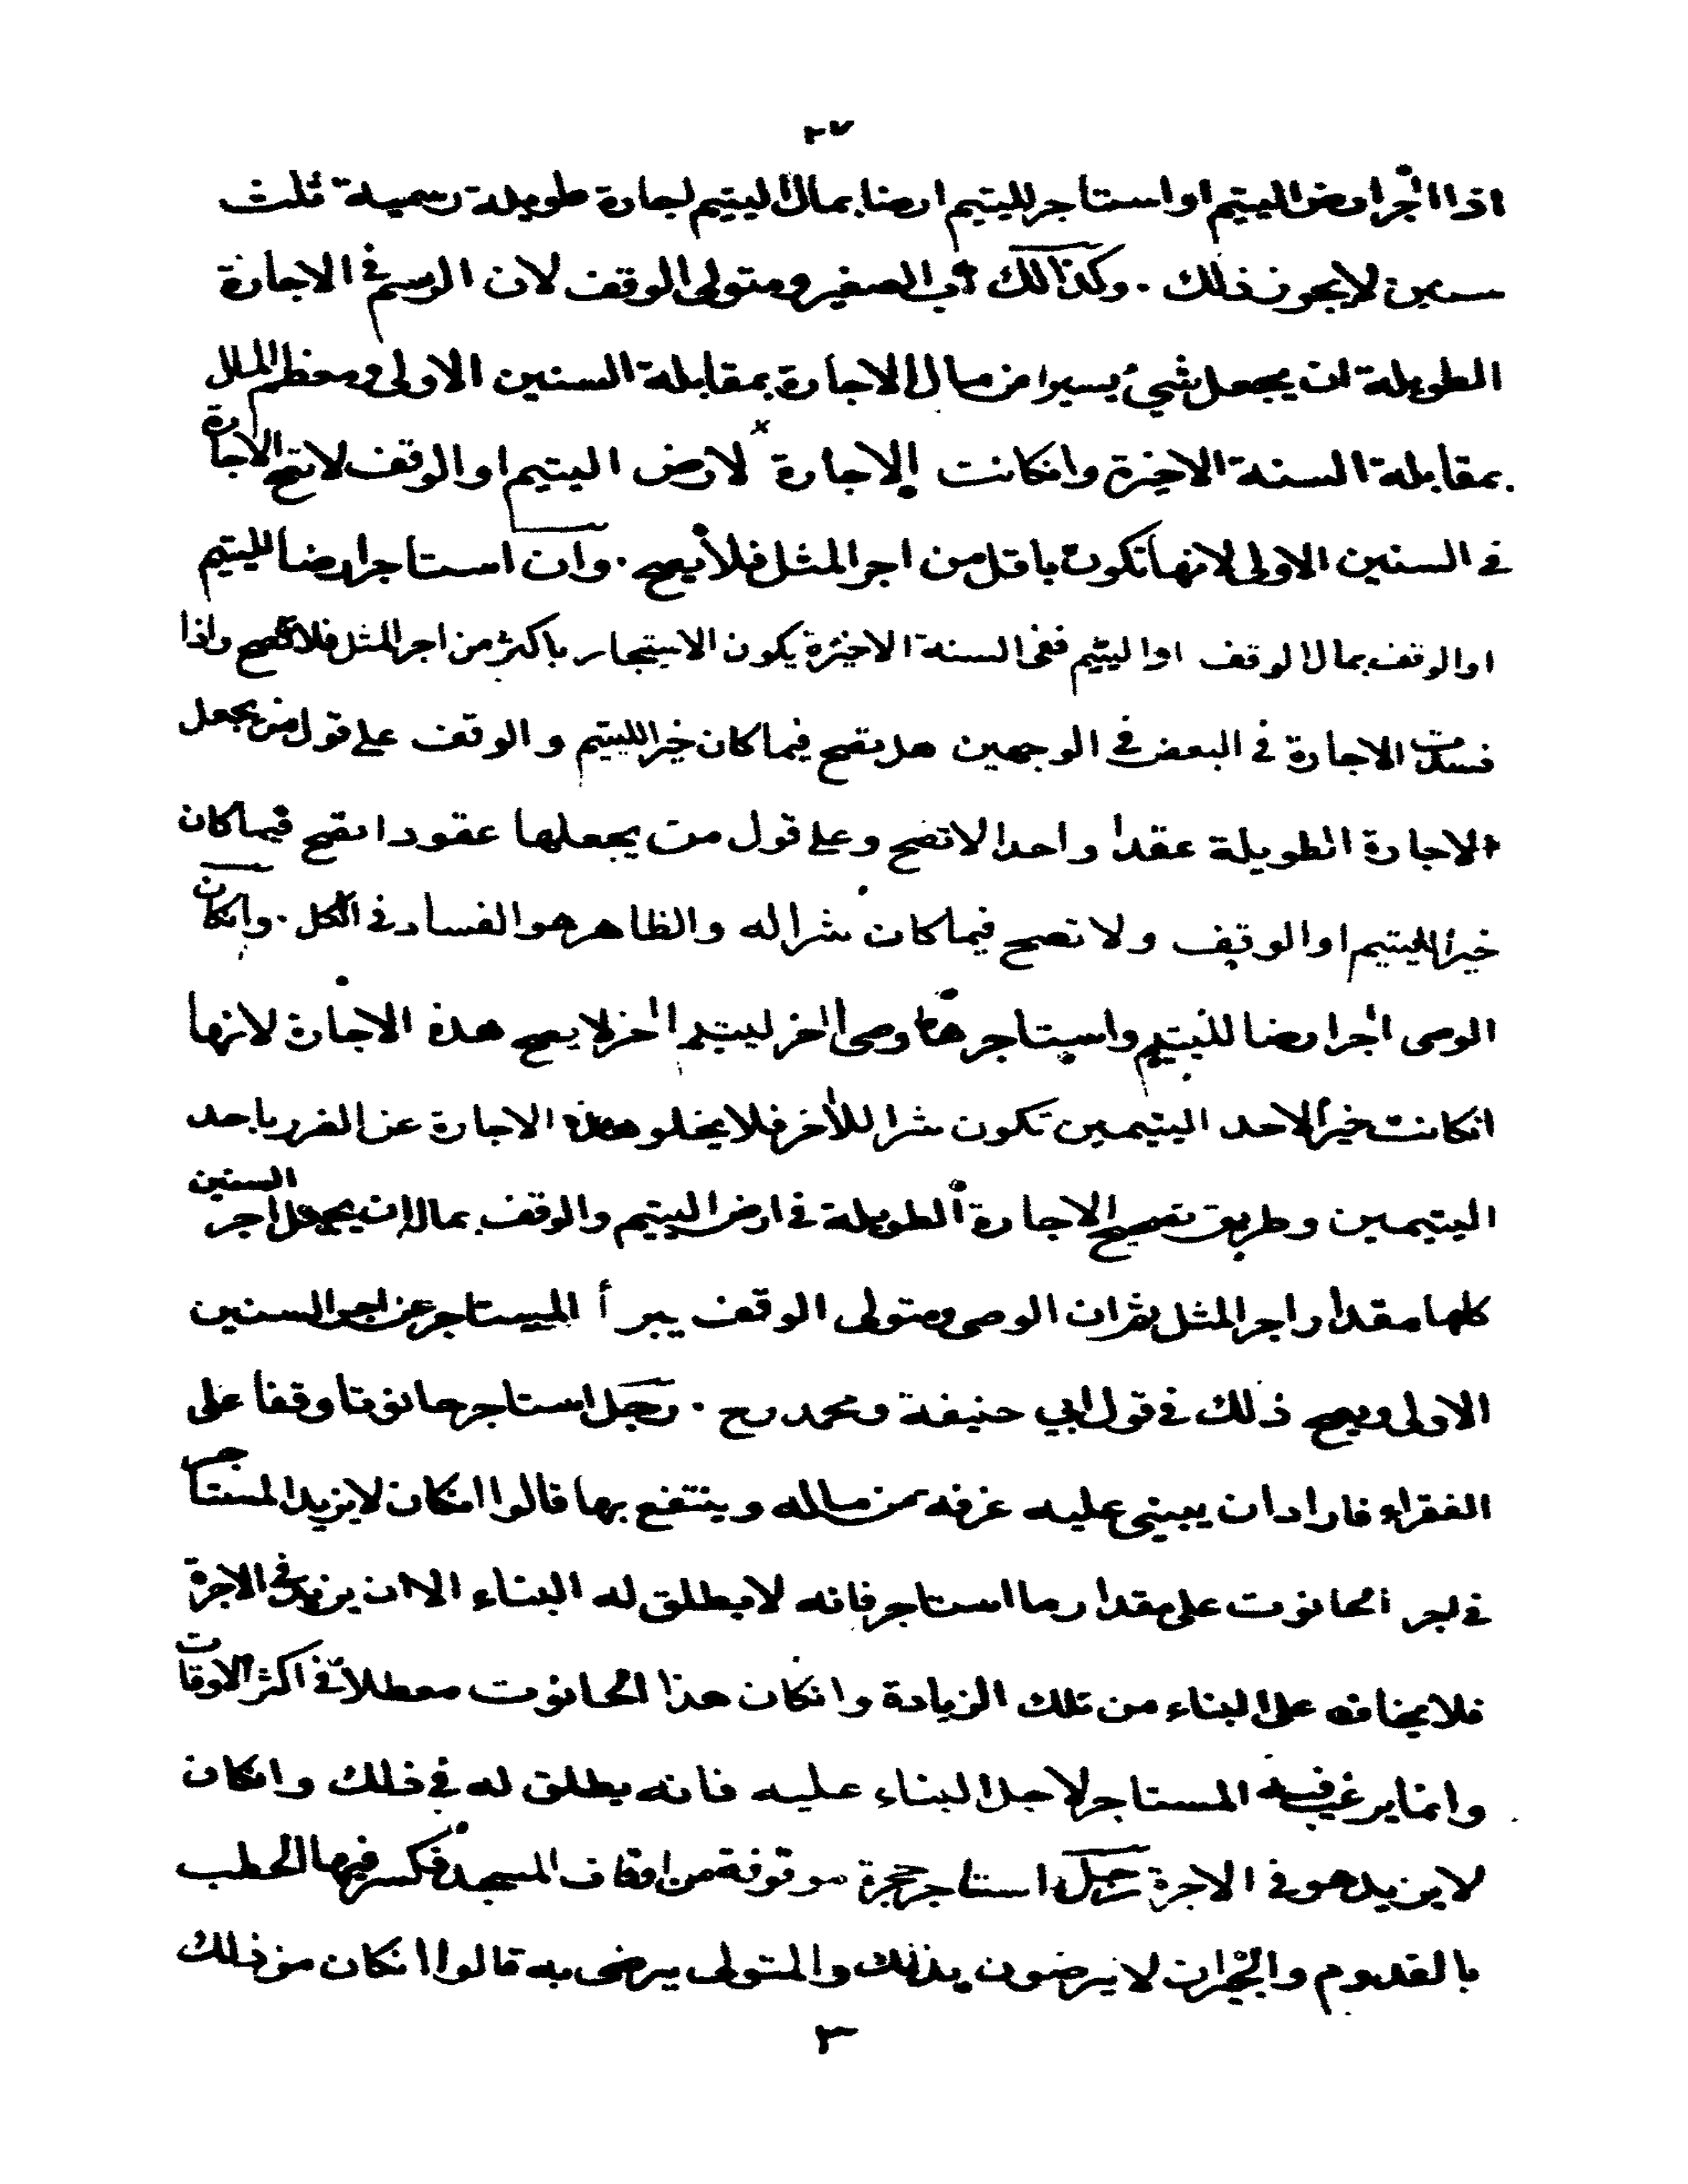 ٢٧
اذا اجر ارض اليتيم او استاجر لليتيم ارضا بمال اليتيم اجارة طويلة رسمية ثلث
سنين لا يجوز ذلك . وكذالك اب الصغير ومتولى الوقف لان الرسم في الاجارة
الطويلة ان يجعل شيء يسيرا من مال الاجارة بمقابلة السنين الاولى ومعظم المال
بمقابلة السنة الاخيرة وانكانت الاجارة لارض اليتيم او الوقف لا تصح الاجارة
في السنين الاولى لانها تكون باقل من اجر المثل فلا يصح . وان استاجر ارضا لليتيم
او الوقف بمال الوقف او اليتيم ففى السنة الاخيرة يكون الاستيجار باكثر من اجر المثل فلا تصح واذا
فسدت الاجارة في البعض في الوجهين هل تصح فيما كان خيرا لليتيم و الوقف على قول من يجعل
الاجارة الطويلة عقدا واحدا لا تصح وعلى قول من يجعلها عقودا تصح فيما كان
خيرا لليتيم او الوقف ولا تصح فيما كان شرا له والظاهر هو الفساد في الكل . وانكان
الوصى اجر ارضا لليتيم واستاجرها وصى اخر ليتيم اخر لا يصح هذه الاجارة لانها
انكانت خيرا لاحد اليتيمين تكون شرا للأخر فلا يخلو هذه الاجارة عن الضرر باحد
اليتيمين وطريق تصحيح الاجارة الطويلة في ارض اليتيم والوقف بماله ان يجعل اجر السنين
كلها مقدار اجر المثل ثم ان الوصى ومتولى الوقف يبرأ المستاجر عن اجر السنين
الاولى ويصح ذلك في قول ابي حنيفة ومحمد رح . رجل استاجر حانوتا وقفا على
الفقراء فاراد ان يبنى عليه غرفه من ماله وينتفع بها قالوا انكان لا يزيد المستاجر
في اجر الحانوت على مقدار ما استاجر فانه لا يطلق له البناء الا ان يزيد في الاجرة
فلا يخاف على البناء من تلك الزيادة وانكان هذا الحانوت معطلا في اكثر الاوقات
وانما يرغب فيه المستاجر لاجل البناء عليه فانه يطلق له في ذلك وانكان
لا يزيد هو في الاجرة رجل استاجر حجرة موقوفة من اوقاف المسجد فكسر فيها الحطب
بالقدوم والجيران لا يرضون بذلك والمتولى يرضى به قالوا انكان من ذلك
٣